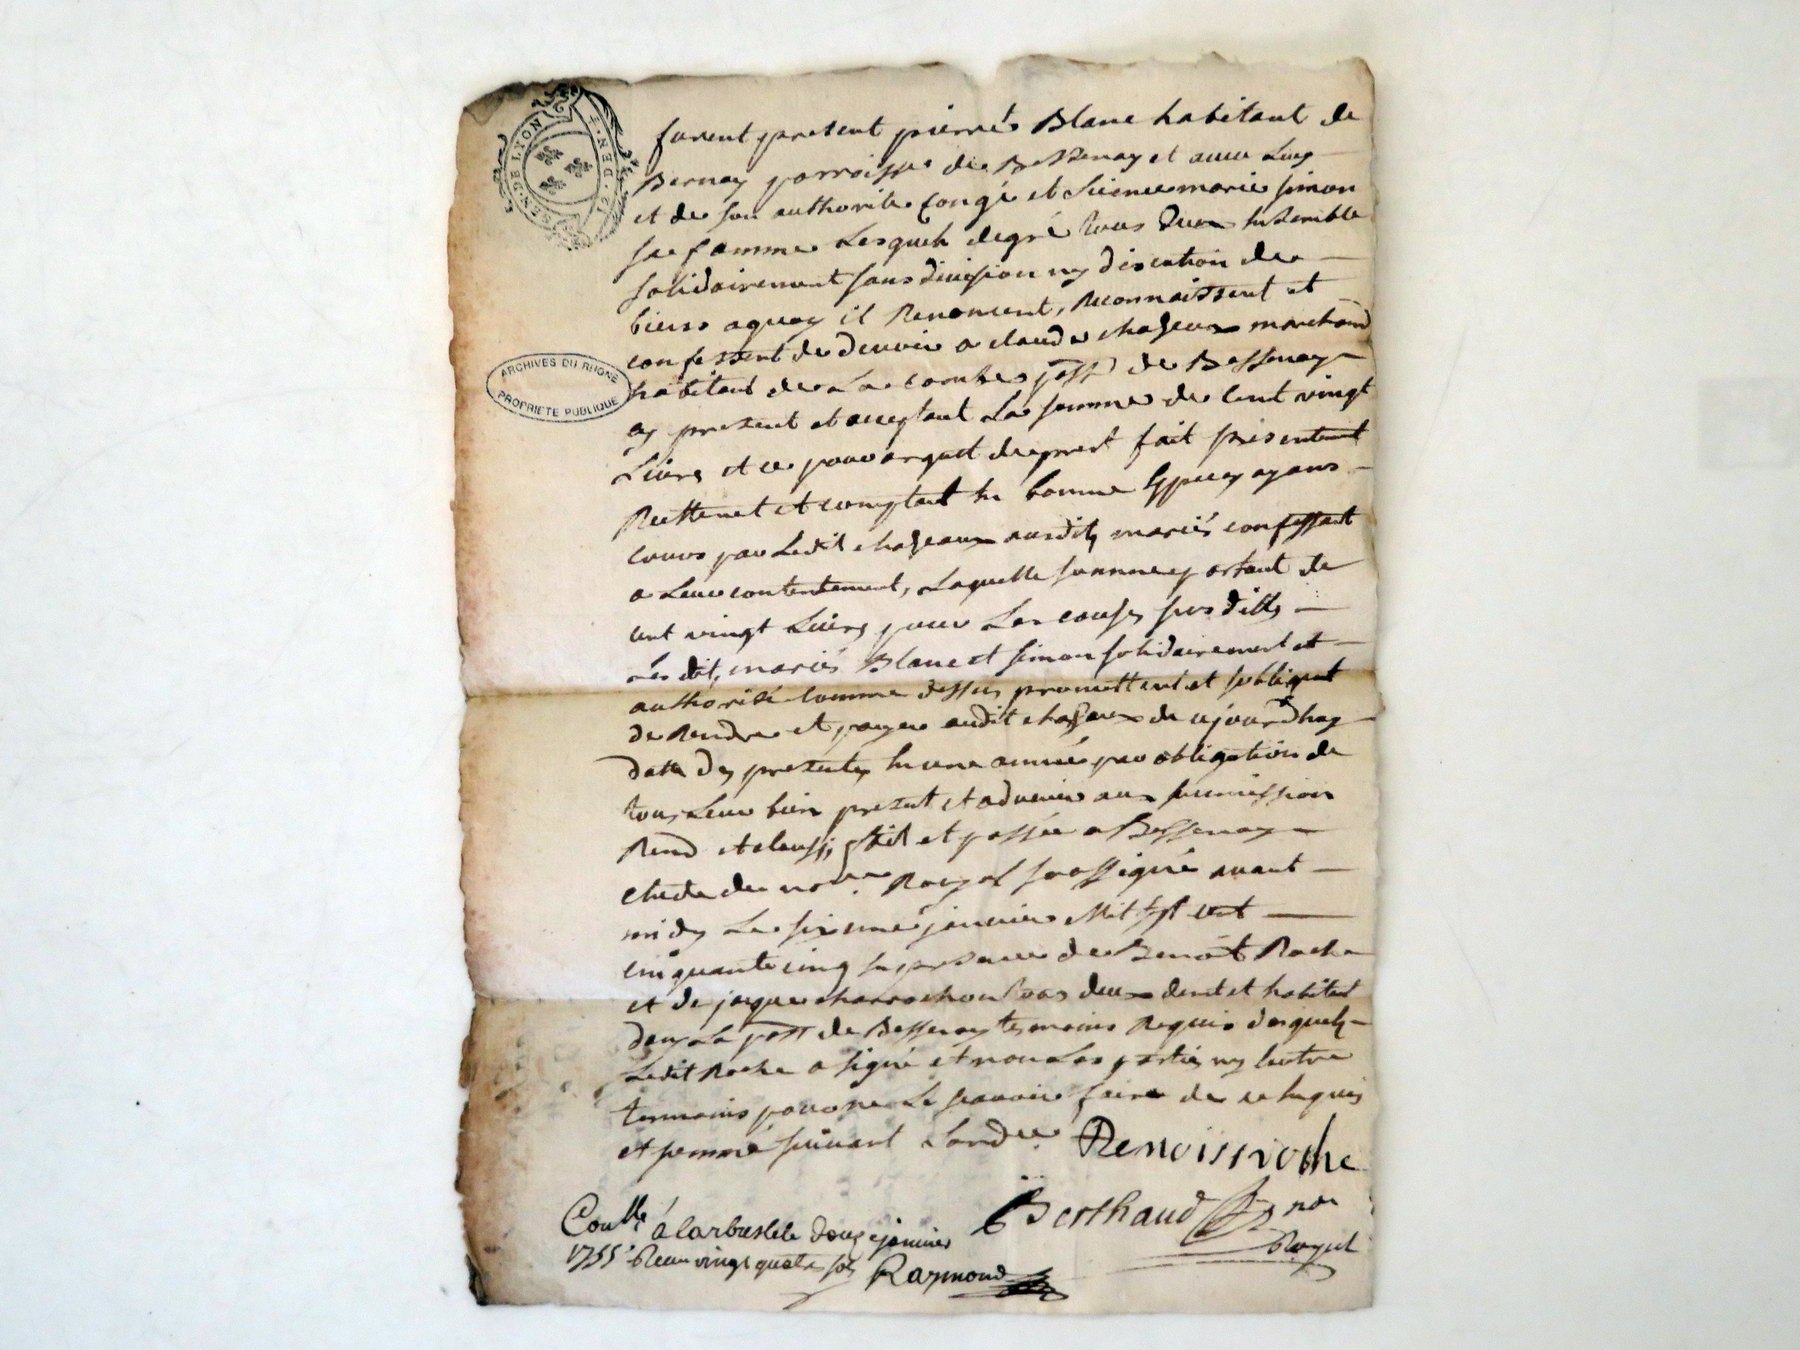 GEN. DE LYON
furent present pierre Blanc habitant de
Bernay parroisse de Bessenay et avec luy
et de son authorité congé et licence marie simon
sa famme Lesquels de gré tous deux Ensemble
solidairement sans division ny discution de
biens a quoy il Renoncent, Reconnaissent et
confessent de devoir a claude chaseaux marchand
habitant de La combe de Bessenay
ARCHIVES DU RHONE
PROPRIETE PUBLIQUE
cy present et acceptant La somme de Cent vingt
Livres et ce pour argent de prest fait presentement
Reellement et comptant En bonne Espece ayans
cours par Ledit chaseaux ausdits mariés confessant
a Leur contentement, Laquelle somme portant de
cent vingt Livres pour Les causes susdittes
Lesdits mariés Blanc et simon solidairement et
authorisé Comme dessus promettent et soblige
de Rendre et payer audit chaseaux de cejourdhuy
datte des presentes En une année par obligation de
tous Leur bien present et advenir aux soumission
Rend et clausses fait et passée a Bessenay
Etude du no.re Royal soussigné avant
midy Le sixieme janvier Mil sept cent
Cinquante cinq En presence de Benoit Roche
et de jacque tous deux et habitant
dans La de Bessenay tesmoins Requis desquels
Ledit Roche a signé et non Les parties ny lautre
temoins pour ne Le scavoir faire de ce Enquis
et sommé suivant Lordce.
Benoist roche
Berthaud nor
Royal
Conllé à larbreslele douze janvier
1755 Receu vingt quatre sols Raymond